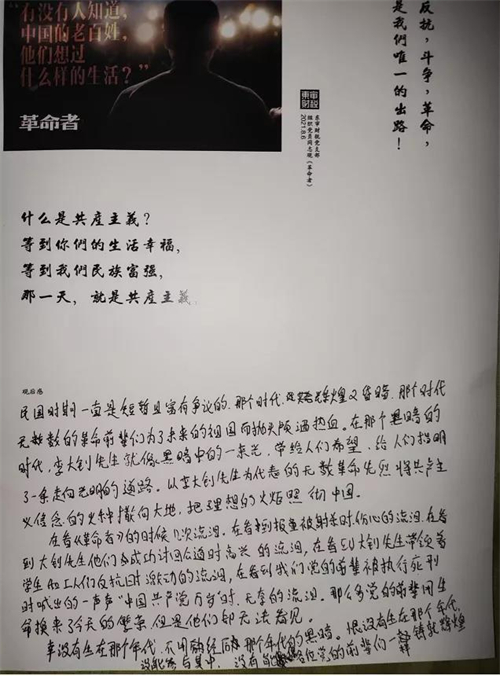 "有没有人知道，
中国的老百姓，
他们想过
什么样的生活？"
革命者
反抗，斗争，革命，
是我們唯一的出路！
東审
财税
东审财税党支部
组织党员同志观《革命者》
2021.8.6
什么是共産主義？
等到你們的生活幸福，
等到我們民族富强，
那一天，就是共産主義
观后感
民国时期一直是短暂且富有争议的，那个时代 辉煌又昏暗，那个时代
无数数的革命前辈们为了未来的祖国而抛头颅洒热血。在那个黑暗的
时代，李大钊先生就像黑暗中的一束光，带给人们希望，给人们指明
了一条走向光明的道路。以李大钊先生为代表的无数革命先烈将共产主
义信念的火种撒向大地，把理想的火焰照彻中国。
在看《革命者》的时候几次流泪。在看到报童被射杀时伤心的流泪，在看
到大钊先生他们会成功讨回公道时高兴的流泪，在看到大钊先生带领着
学生和工人们在抗旧时激动的流泪，在看到我们党的前辈被执行死刑
时喊出的一声声"中国共产党万岁"时，无奈的流泪。那么多党的前辈用生
命换来了今天的繁荣，但是他们却无法看见。
幸没有生在那个年代，不用 那个年代的黑暗。恨没有生在那个年代，
没能参与其中，没有 党的前辈们一 铸就辉煌